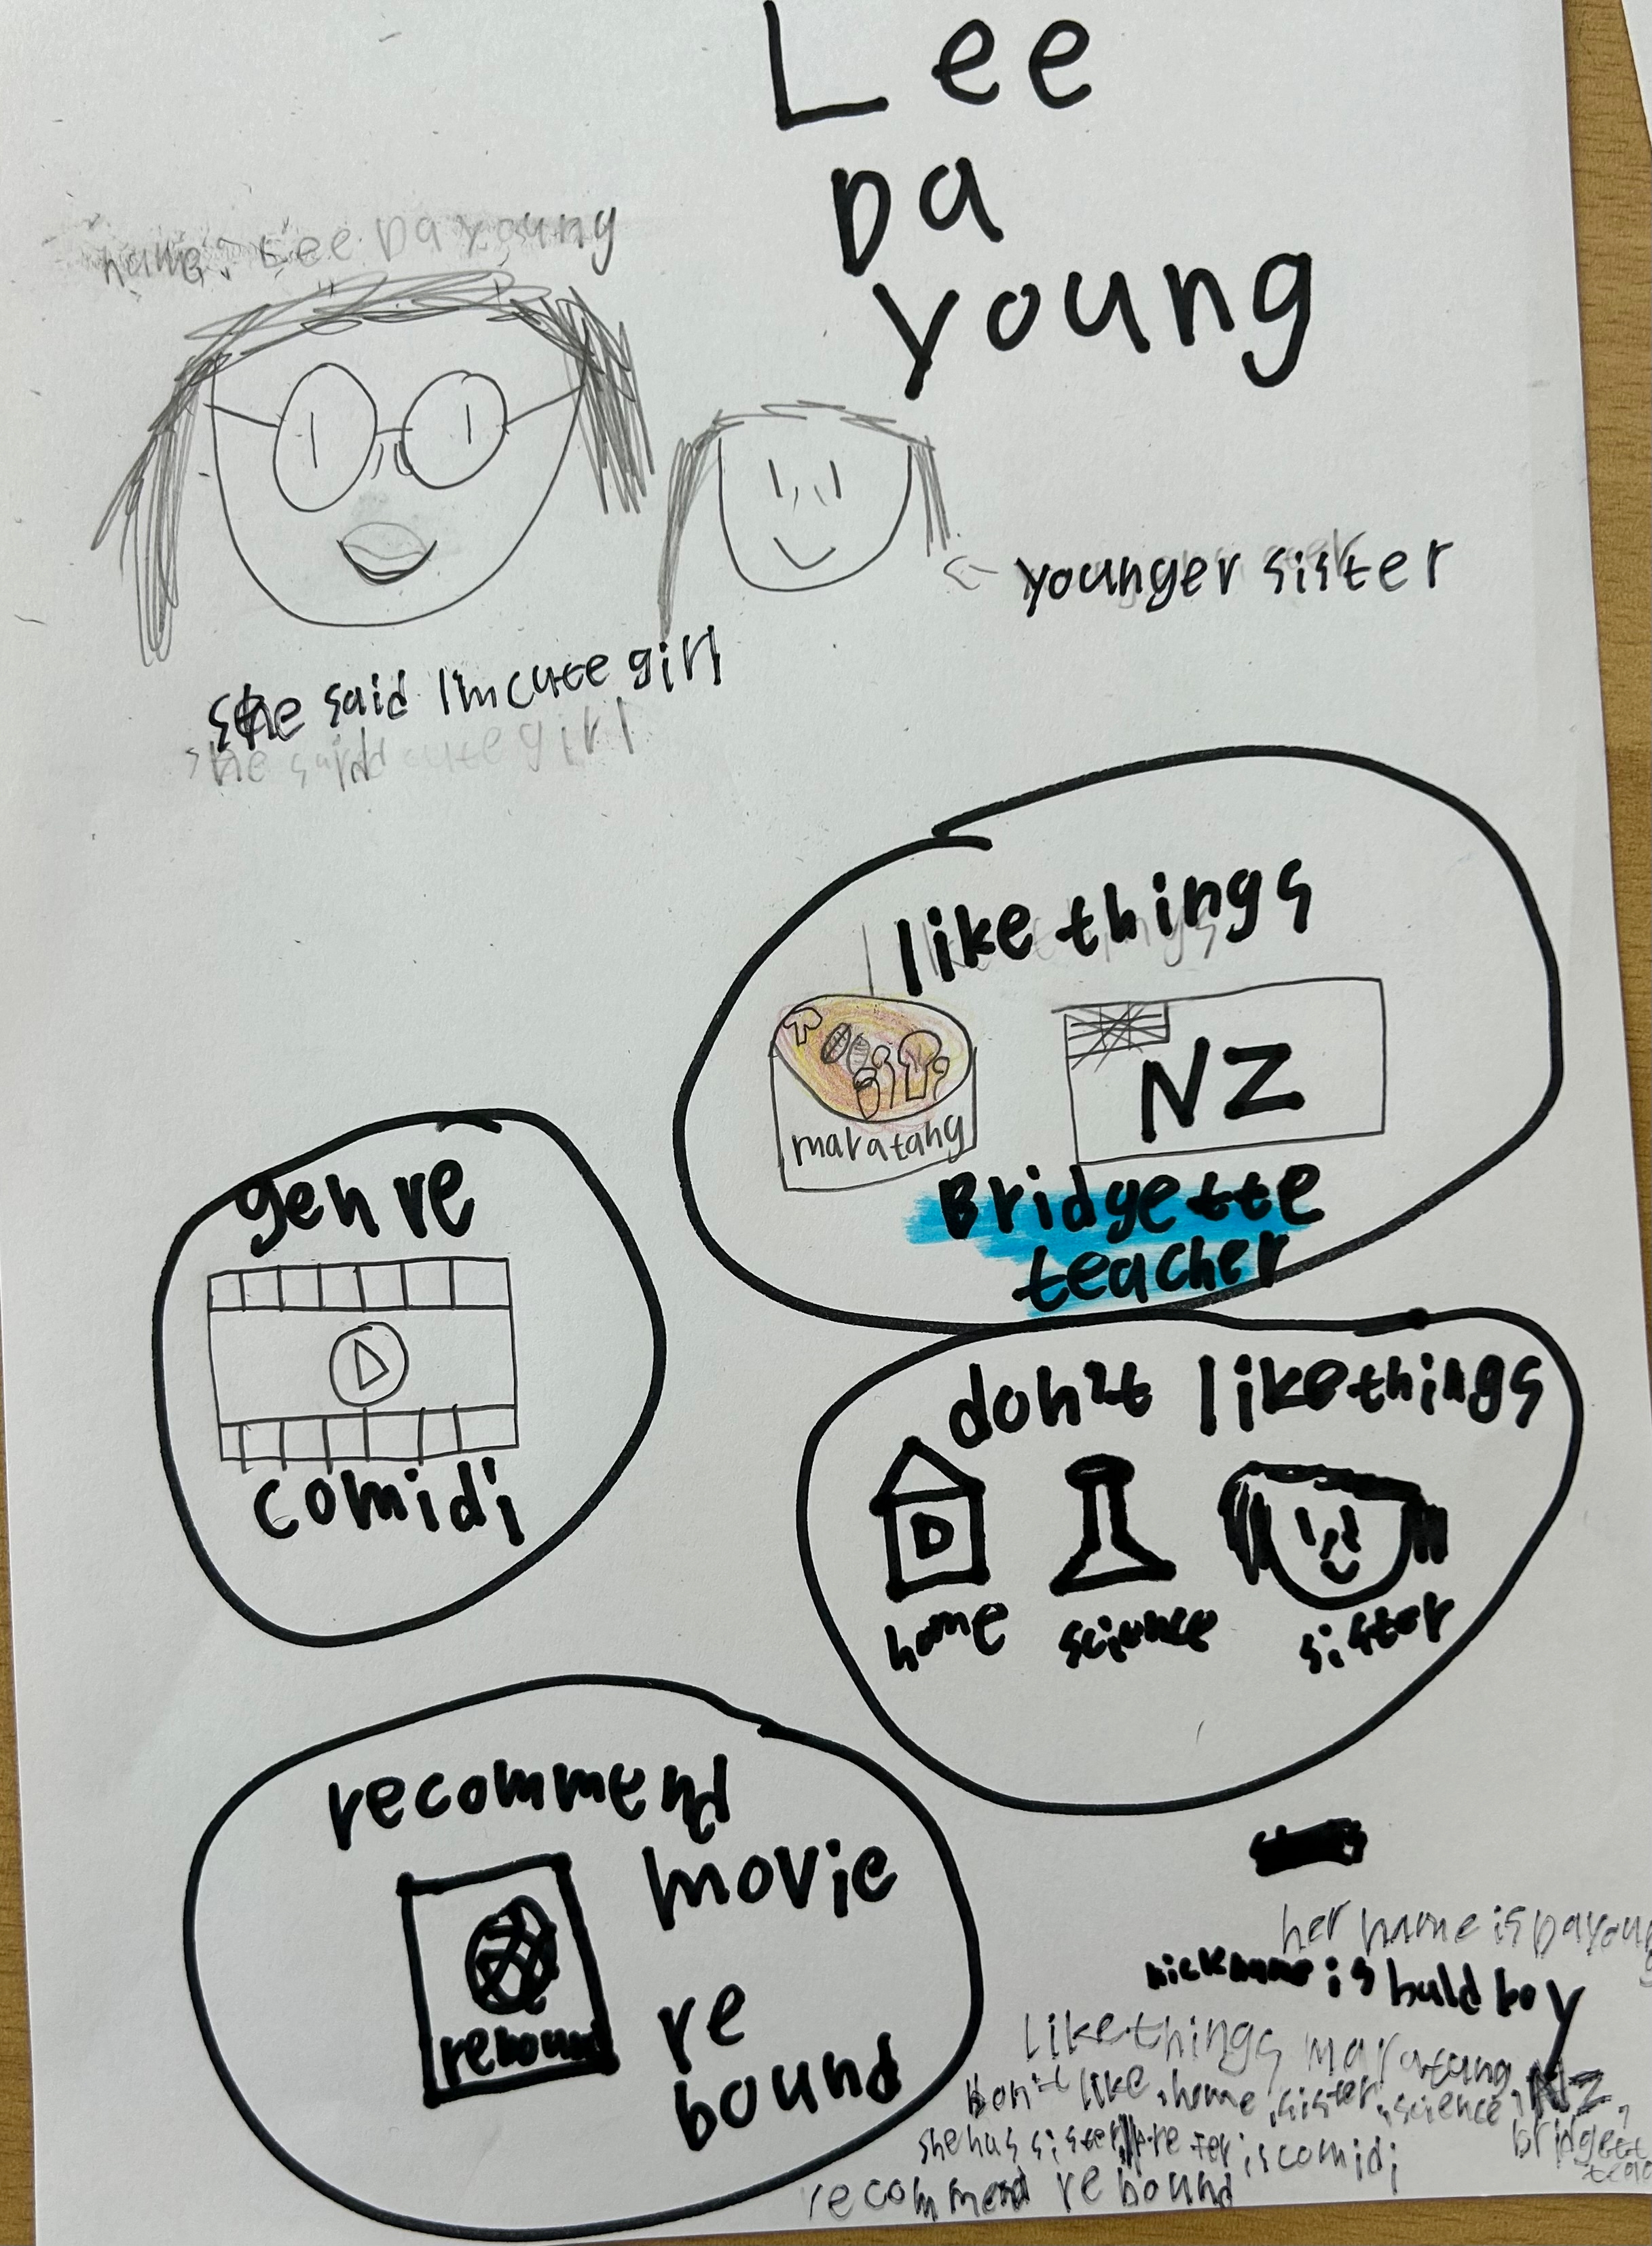 Lee
Da
young
name: Lee Da young
younger sister
she said I'm cute girl
she said cute girl
like things
maratang
NZ
Bridgette
teacher
genre
comidi
don't like things
home
science
sister
recommend
movie
rebound
re
bound
her name is Dayoung
nickname is bald boy
like things maratang, NZ,
bridgette
Don't like home, sister, science
she has sister is comidi
recommend re bound